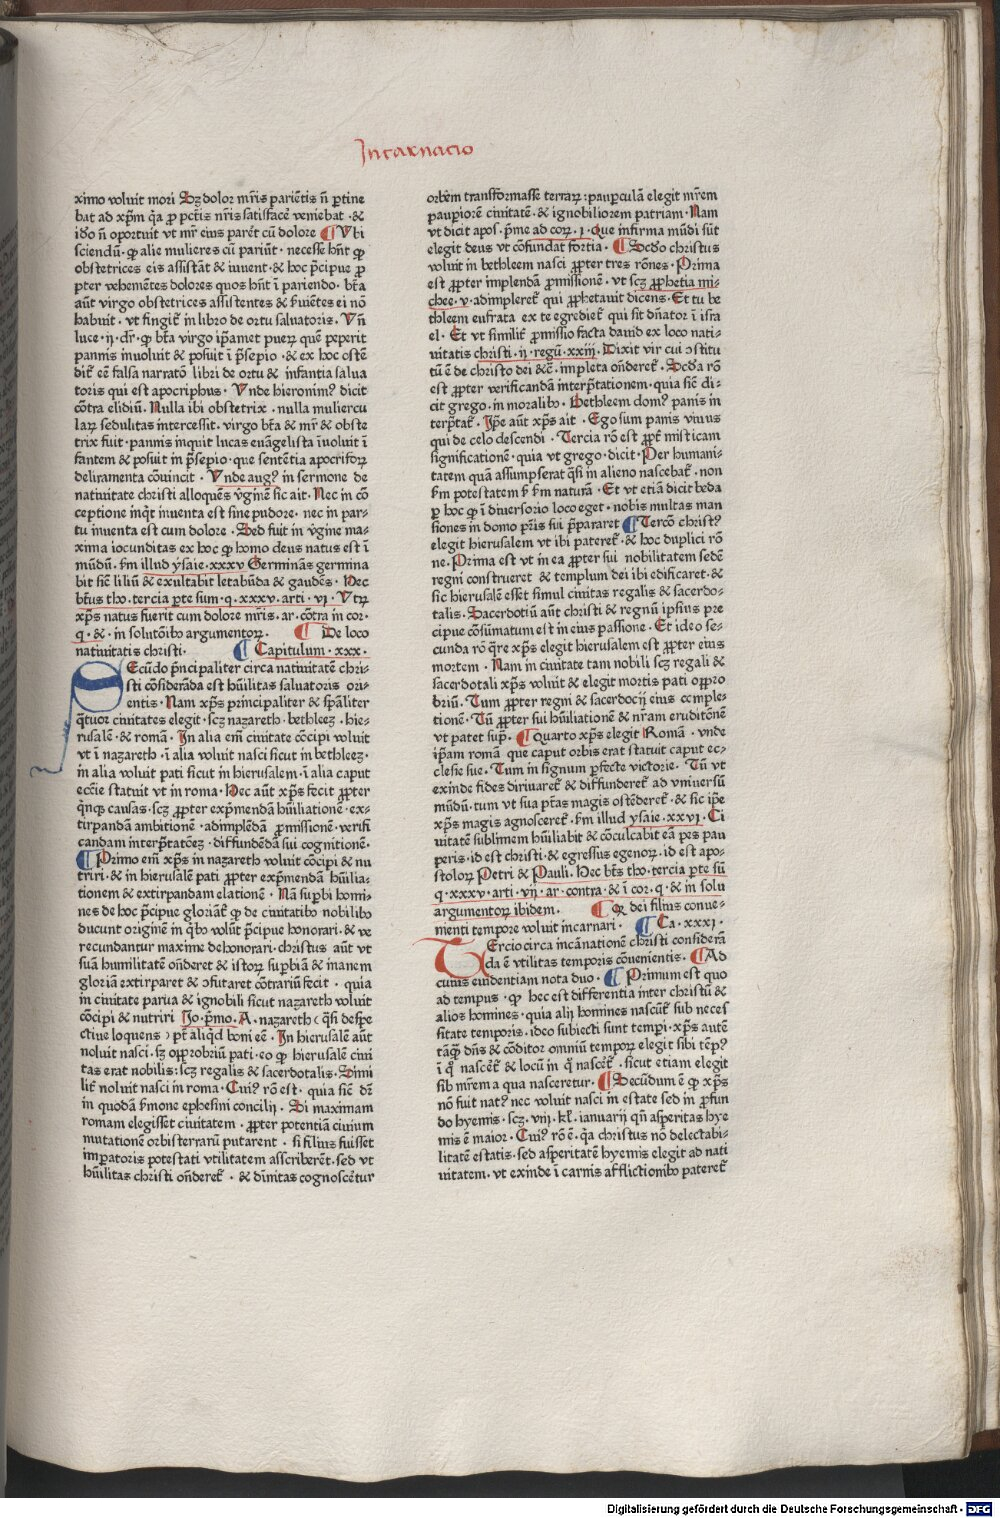 Incarnacio
ximo voluit mori Sꝫ dolor mr̄is pariētis nō ꝑtine
bat ad xp̄m q̄a ꝓ pctīs nr̄is satisfacē veniebat · &
iďo nō oportuit vt mr̄ eius parēt cū dolore ¶ Vbi
sciendū · ꝙ alie mulieres cū pariūt · necesse hn̄t ꝙ
obstetrices eis assistāt & iuuent · & hoc p̄cipue ꝓ
pter vehemētes dolores quos hn̄t ī pariendo · btā
aūt virgo obstetrices assistentes & ẜuiētes ei nō
habuit · vt fingit᷑ in libro de ortu saluatoris · Vn̄
luce · ij · dr̄ · ꝙ btā virgo ip̄amet puerꝫ quē peperit
pannis inuoluit & posuit ī p̄sepio · & ex hoc ostē
dit᷑ eē falsa narratō libri de ortu & infantia salua
toris qui est apocriphus · Vnde hieronimꝰ dicit
cōtra elidiū · Nulla ibi obstetrix · nulla muliercu
larꝫ sedulitas intercessit · virgo btā & mr̄ & obste
trix fuit · pannis inquit lucas euāgelista īuoluit ī
fantem & posuit in p̄sepio · que sentētia apocriforꝫ
deliramenta cōuincit · Vnde augꝰ in sermone de
natiuitate christi alloquēs v̄ginē sic ait · Nec in cō
ceptione inq̄t inuenta est sine pudore · nec in par-
tu inuenta est cum dolore · Sed fuit in v̄gine ma-
xima iocunditas ex hoc ꝙ homo deus natus est ī
mūdū · ẜm illud ysaie · xxxv Germinās germina
bit sic̄ liliū & exultabit letabūda & gaudēs · Hec
bt̄us tho · tercia ꝑte sum · q · xxxv · arti · vi · Vtrꝫ
xp̄s natus fuerit cum dolore mr̄is · ar · cōtra in cor ·
q · & · in solutōibꝰ argumentorꝫ · ¶ De loco
natiuitatis christi · ¶ Capitulum · xxx ·
SEcūdo p̄ncipaliter circa natiuitatē chri-
sti cōsiderāda est hūilitas saluatoris ori-
entis · Nam xp̄s principaliter & sp̄aliter
q̄tuor ciuitates elegit · scꝫ nazareth · bethleeꝫ · hie-
rusalē · & romā · In alia em̄ ciuitate cōcipi voluit
vt ī nazareth · ī alia voluit nasci sicut in bethleeꝫ ·
in alia voluit pati sicut in hierusalem · ī alia caput
ecc̄ie statuit vt in roma · Hec aūt xp̄s fecit ꝓpter
q̄nqꝫ causas · scꝫ ꝓpter exp̄mendā hūiliationē · ex-
tirpandā ambitionē · adimplēdā ꝓmissionē · verifi
candam interp̄tatōeꝫ · diffundēdā sui cognitionē ·
¶ Primo em̄ xp̄s in nazareth voluit cōcipi & nu
triri · & in hierusalē pati ꝓpter exp̄mendā hūilia-
tionem & extirpandam elationē · Nā suꝑbi homi-
nes de hoc p̄cipue gloriāt᷑ ꝙ de ciuitatibꝰ nobilibꝰ
ducunt originē in q̄bꝰ volūt p̄cipue honorari · & ve
recundantur maxime dehonorari · christus aūt vt
suā humilitatē oñderet & istorꝫ suꝑbiā & inanem
gloriā extirparet & ↄfutaret cōtrariū fecit · quia
in ciuitate parua & ignobili sicut nazareth voluit
cōcipi & nutriri Jo · p̄mo · A · nazareth (q̄si despe
ctiue loquens) pt̄ aliq̄d boni eē · In hierusalē aūt
noluit nasci · sꝫ opꝓbriū pati · eo ꝙ hierusalē ciui
tas erat nobilis : scꝫ regalis & sacerdotalis · Simi
lit᷑ noluit nasci in roma · Cuiꝰ rō est · quia sic̄ dr̄
in quodā ẜmone ephesini concilij · Si maximam
romam elegisset ciuitatem · ꝓpter potentiā ciuium
mutationē orbisterrarū putarent · si filius fuisset
imꝑatoris potestati vtilitatem asscriberēt · sed vt
hūilitas christi oñderet᷑ · & diīnitas cognoscētur
orbēm transformasse terrarꝫ : pauꝑculā elegit mr̄em
pauꝑiorē ciuitatē · & ignobiliorem patriam · Nam
vt dicit apos · p̄me ad corꝫ · i · Que infirma mūdi sūt
elegit deus vt cōfundat fortia · ¶ Scďo christus
voluit in bethleem nasci ꝓpter tres rōnes · Prima
est ꝓpter implendā ꝓmissionē · vt scꝫ ꝓphetia mi-
chee · v · adimpleret᷑ qui ꝓphetauit dicens · Et tu be
thleem eufrata ex te egrediet᷑ qui sit dn̄ator ī isra
el · Et vt similit᷑ ꝓmissio facta dauid ex loco nati-
uitatis christi · ij · regū · xxiij · Dixit vir cui ↄstitu
tū ē de christo dei &c̄ · impleta oñderet᷑ · Scďa rō
est ꝓpter verificandā interp̄tationem · quia sic̄ di-
cit grego · in moralibꝰ · Bethleem domꝰ panis in
terp̄tat᷑ · Ip̄e aūt xp̄s ait · Ego sum panis viuus
qui de celo descendi · Tercia rō est ꝓpt᷑ misticam
significationē · quia vt grego · dicit · Per humani-
tatem quā assumpserat q̄si in alieno nascebat᷑ · non
ẜm potestatem ẜ ẜm naturā · Et vt etiā dicit beda
ꝑ hoc ꝙ ī diuersorio loco eget · nobis multas man
siones in domo pr̄is sui p̄pararet ¶ Tercō christꝰ
elegit hierusalem vt ibi pateret᷑ · & hoc duplici rō
ne · Prima est vt in ea ꝓpter sui nobilitatem sedē
regni construeret & templum dei ibi edificaret · &
sic hierusalē esset simul ciuitas regalis & sacerdo-
talis · Sacerdotiū aūt christi & regnū ipsius pre
cipue cōsūmatum est in eius passione · Et ideo se-
cunda rō q̄re xp̄s elegit hierusalem est ꝓpter eius
mortem · Nam in ciuitate tam nobili scꝫ regali &
sacerdotali xp̄s voluit & elegit mortis pati opꝓo
briū · Tum ꝓpter regni & sacerdocij eius comple-
tionē · Tū ꝓpter sui hūiliationē & nr̄am eruditōnē
vt patet sup̄ · ¶ Quarto xp̄s elegit Romā · vnde
ip̄am romā que caput orbis erat statuit caput ec-
clesie sue · Tum in signum ꝑfecte victorie · Tū vt
exinde fides diriuaret᷑ & diffunderet᷑ ad vniuersū
mūdū · tum vt sua pt̄as magis ostēderet᷑ · & sic ip̄e
xp̄s magis agnosceret᷑ · ẜm illud ysaie · xxvi · Ci
uitatē sublimem hūiliabit & cōculcabit eā pes pau
peris · id est christi · & egressus egenorꝫ · id est apo-
stolorꝫ Petri & Pauli · Hec bt̄s tho · tercia ꝑte sū
q · xxxv · arti · vij · ar · contra · & ī cor · q · & in solu
argumentorꝫ ibidem · ¶ Qꝫ dei filius conue-
nienti tempore voluit incarnari · ¶ Ca · xxxi ·
TErcio circa incānationē christi considerā
da ē vtilitas temporis cōuenientis · ¶ Ad
cuius euidentiam nota duo · ¶ Primum est quo
ad tempus · ꝙ hec est differentia inter christū &
alios homines · quia alij homines nascūt᷑ sub neces
sitate temporis · ideo subiecti sunt tempī · xp̄s autē
tāqꝫ dn̄s & cōditor omniū temporꝫ elegit sibi tēpꝰ
ī qͦ nascēt᷑ & locū in qͦ nascēt᷑ · sicut etiam elegit
sib mr̄em a qua nasceretur · ¶ Secūdum ē ꝙ xp̄s
nō fuit natꝰ nec voluit nasci in estate sed in ꝓfun
do hyemis · scꝫ · viij · kl̄ · ianuarij qn̄ asperitas hye
mis ē maior · Cuiꝰ rō ē · q̄a christus nō delectabi-
litatē estatis · sed asperitatē hyemis elegit ad nati
uitatem · vt exinde ī carnis afflictionibꝰ pateret᷑
Digitalisierung gefördert durch die Deutsche Forschungsgemeinschaft - DFG